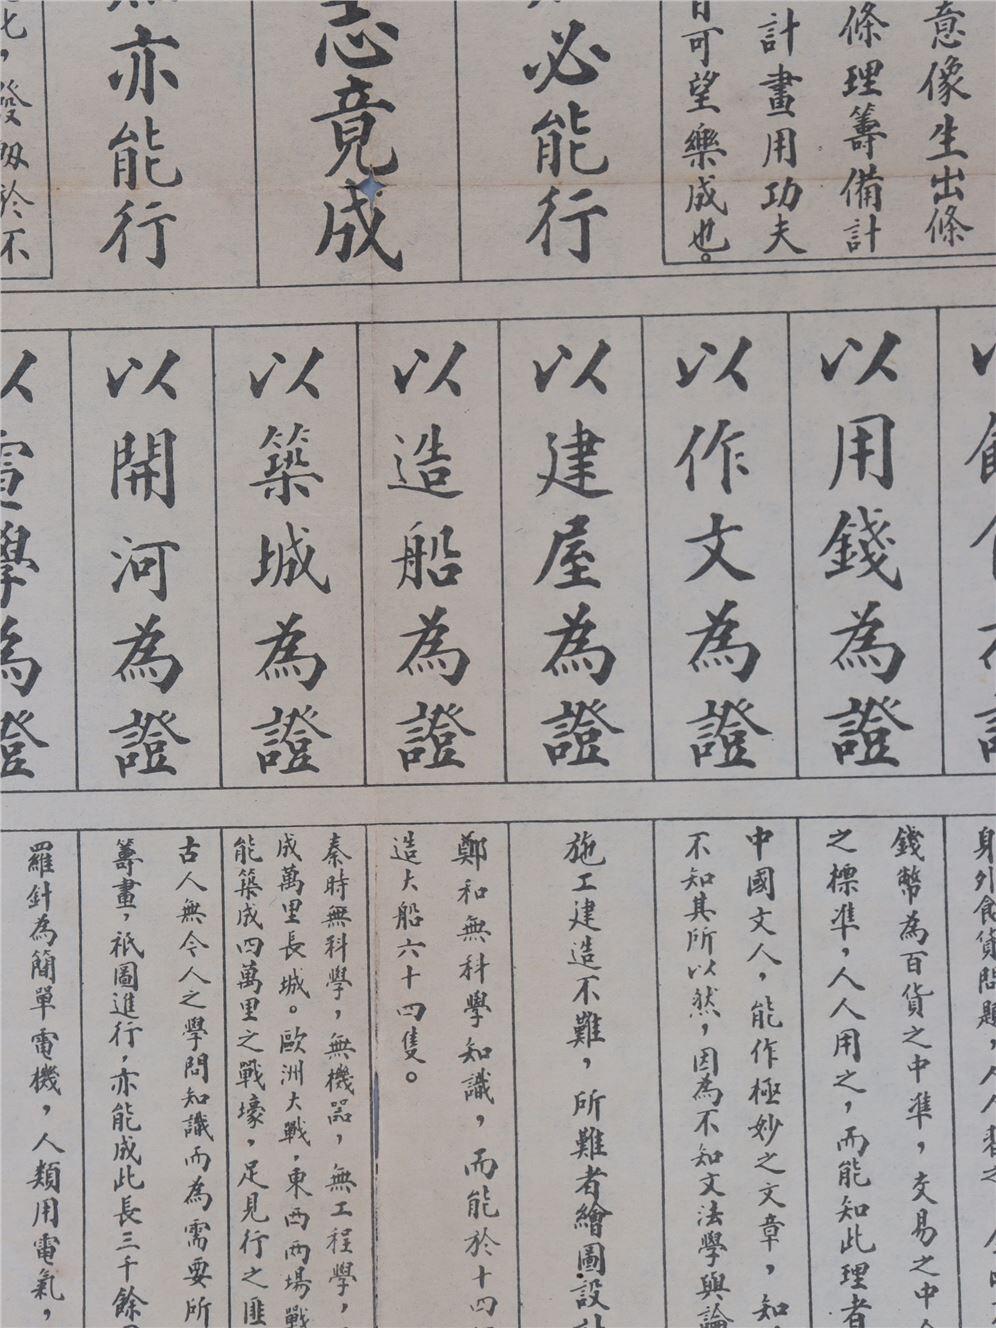 意像生出條
條理籌備計
計畫用功夫
可望樂成也。
必能行
志竟成
亦能行
發軔於不
以用錢為證
以作文為證
以建屋為證
以造船為證
以築城為證
以開河為證
以電學為證
身外食貨問題,人人習之
錢幣為百貨之中準,交易之中
之標準,人人用之,而能知此理者
中國文人,能作極妙之文章,知
不知其所以然,因為不知文法學與論
施工建造不難,所難者繪圖設計
鄭和無科學知識,而能於十四
造大船六十四隻。
秦時無科學,無機器,無工程學,
成萬里長城。歐洲大戰,東西兩場戰
能築成四萬里之戰壕,足見行之匪
古人無今人之學問知識而為需要所
籌畫,祇圖進行,亦能成此長三千餘
羅針為簡單電機,人類用電氣,